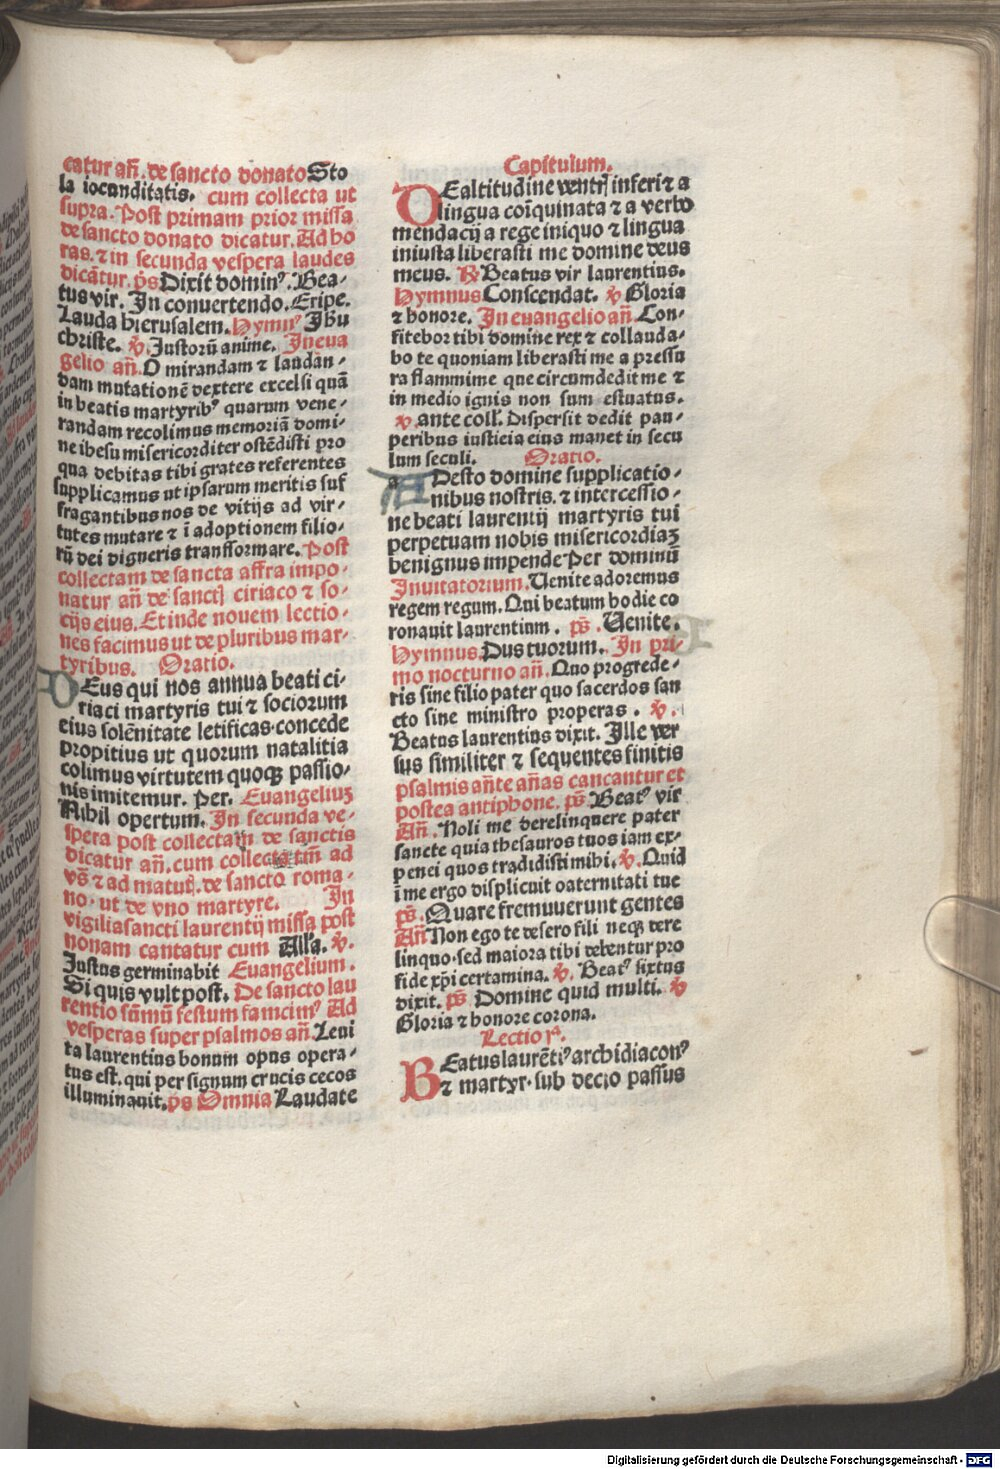 catur añ. de sancto donato Sto
la iocunditatis. cum collecta ut
supra. Post primam prior missa
de sancto donato dicatur. Ad ho
ras. ⁊ in secunda vespera laudes
dicãtur. p̃s Dixit domin⁹. Bea-
tus vir. In conuertendo. Eripe.
Lauda hierusalem. Hymn⁹ Ihu
christe. ℣. Iustorũ anime. In eua
gelio añ. O mirandam ⁊ laudan-
dam mutationẽ dextere excelsi quã
in beatis martyrib⁹ quarum vene-
randam recolimus memoriã domi-
ne ihesu misericorditer ostẽdisti pro
qua debitas tibi grates referentes
supplicamus ut ipsarum meritis suf
fragantibus nos de vitijs ad vir-
tutes mutare ⁊ ĩ adoptionem filio-
rũ dei digneris transformare. Post
collectam de sancta affra impo-
natur añ de sanctj ciriaco ⁊ so-
cijs eius. Et inde nouem lectio-
nes facimus ut de pluribus mar-
tyribus. Oratio.
DEus qui nos annua beati ci-
riaci martyris tui ⁊ sociorum
eius solẽnitate letificas·concede
propitius ut quorum natalitia
colimus virtutem quoqꝫ passio-
nis imitemur. Per. Euangeliuꝫ
Nihil opertum. In secunda ve-
spera post collectam de sanctis
dicatur añ. cum collecta tm̃ ad
vs̃ ⁊ ad matut̃. de sancto roma-
no· ut de vno martyre. In
vigilia sancti laurentij missa post
nonam cantatur cum Alĺa. ℣.
Iustus germinabit Euangelium.
Si quis vult post. De sancto lau
rentio sũmũ festum facim⁹ Ad
vesperas super psalmos añ. Leui
ta laurentius bonum opus opera-
tus est. qui per signum crucis cecos
illuminauit. p̃s Omnia Laudate
Capitulum.
DE altitudine ventrꝭ inferi ⁊ a
lingua coĩquinata ⁊ a verbo
mendacij a rege iniquo ⁊ lingua
iniusta liberasti me domine deus
meus. ℟ Beatus vir laurentius.
Hymnus Conscendat. ℣ Gloria
⁊ honore. In euangelio añ. Con-
fitebor tibi domine rex ⁊ collauda-
bo te quoniam liberasti me a pressu
ra flammime que circumdedit me ⁊
in medio ignis non sum estuatus.
℣ ante colĺ. Dispersit dedit pau-
peribus iusticia eius manet in secu
lum seculi. Oratio.
ADesto domine supplicatio-
nibus nostris. ⁊ intercessio-
ne beati laurentij martyris tui
perpetuam nobis misericordiaꝫ
benignus impende Per dominũ
Inuitatorium. Venite adoremus
regem regum. Qui beatum hodie co
ronauit laurentium. p̃s. Venite.
Hymnus. Dus tuorum. In pri-
mo nocturno añ. Quo progrede-
ris sine filio pater quo sacerdos san
cto sine ministro properas. ℣.
Beatus laurentius dixit. Ille ver
sus similiter ⁊ sequentes finitis
psalmis ãnte añas cancantur et
postea antiphone. p̃s. Beat⁹ vir
Añ. Noli me derelinquere pater
sancte quia thesauros tuos iam ex-
penei quos tradidisti mihi. ℣. Quid
ĩ me ergo displicuit oaternitati tue
p̃s. Quare fremuuerunt gentes
Añ Non ego te desero fili neqꝫ dere
linquo·sed maiora tibi debentur pro
fide xp̃i certamina. ℣. Beat⁹ sixtus
dixit. p̃s Domine quid multi. ℣
Gloria ⁊ honore corona.
Lectio jª.
BEatus laurẽti⁹ archidiacon⁹
⁊ martyr·sub decio passus
Digitalisierung gefördert durch die Deutsche Forschungsgemeinschaft - DFG